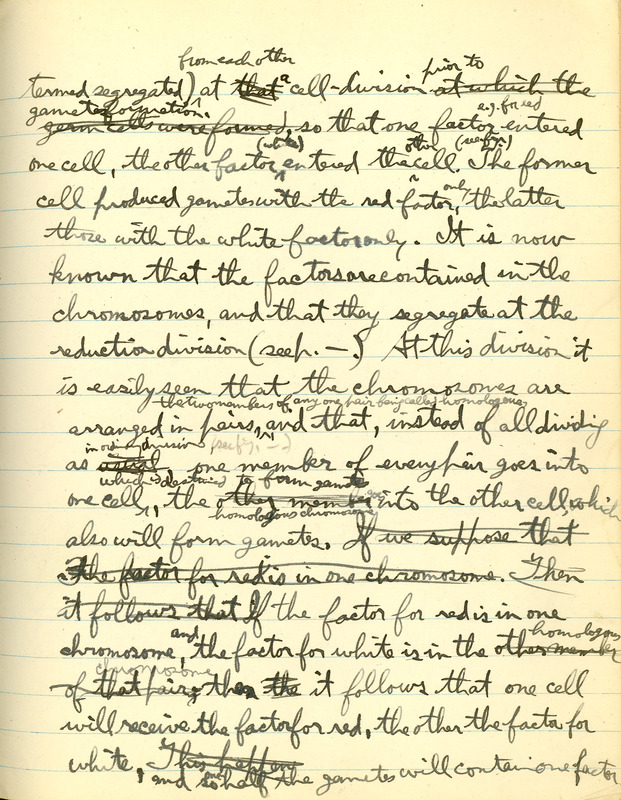 from each other prior to
termed segregated) at that a cell-division at which the
gamete formation.
germ cells were formed, so that one factor e.g. for red entered
one cell, the other factor (white) entered the other cell. (see fig.) The former
cell produced gametes with the red factor only, the latter
those with the white factor only. It is now
known that the factors are contained in the
chromosomes, and that they segregate at the
reduction division (see p. —.) At this division it
is easily seen that the chromosomes are
the two members of any one pair being called homologous,
arranged in pairs, and that, instead of all dividing
in ordinary division (see fig. —)
as usual one member of every pair goes into
which is destined to form gametes
one cell, the other member into the other cell, which
homologous chromosome
also will form gametes. If we suppose that
the factor for red is in one chromosome. Then
it follows that If the factor for red is in one
chromosome, and the factor for white is in the other member homologous
chromosome
of that pair; then the it follows that one cell
will receive the factor for red, the other the factor for
white, This happen
and so one half the gametes will contain one factor